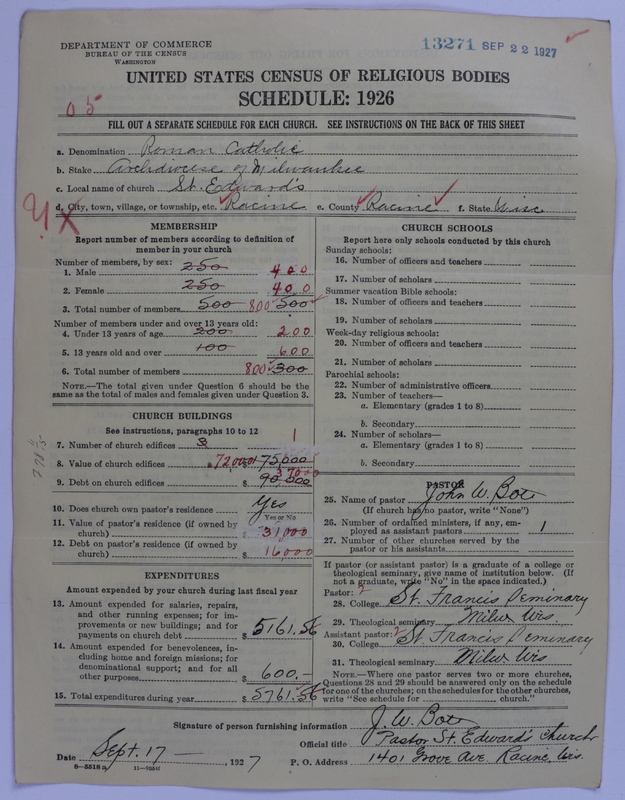 DEPARTMENT OF COMMERCE
BUREAU OF THE CENSUS
WASHINGTON
13271 SEP 22 1927
UNITED STATES CENSUS OF RELIGIOUS BODIES
SCHEDULE: 1926
05
FILL OUT A SEPARATE SCHEDULE FOR EACH CHURCH. SEE INSTRUCTIONS ON THE BACK OF THIS SHEET
a. Denomination Roman Catholic
b. Stake Archdiocese of Milwaukee
c. Local name of church St. Edward's
d. City, town, village, or township, etc. Racine e. County Racine f. State Wisc
MEMBERSHIP
Report number of members according to definition of
member in your church
Number of members, by sex:
1. Male 250 400
2. Female 250 400
3. Total number of members 500 800 500
Number of members under and over 13 years old:
4. Under 13 years of age 200 200
5. 13 years old and over 100 600
6. Total number of members 800 300
NOTE.—The total given under Question 6 should be the
same as the total of males and females given under Question 3.
CHURCH BUILDINGS
See instructions, paragraphs 10 to 12
7. Number of church edifices 3 1
8. Value of church edifices $ 72000 75,000
9. Debt on church edifices $ 90,000
10. Does church own pastor's residence Yes
Yes or No
11. Value of pastor's residence (if owned by
church) $ 31,000
12. Debt on pastor's residence (if owned by
church) $ 16000
EXPENDITURES
Amount expended by your church during last fiscal year
13. Amount expended for salaries, repairs,
and other running expenses; for im-
provements or new buildings; and for
payments on church debt $ 5161.56
14. Amount expended for benevolences, in-
cluding home and foreign missions; for
denominational support; and for all
other purposes $ 600.-
15. Total expenditures during year $ 5761.56
CHURCH SCHOOLS
Report here only schools conducted by this church
Sunday schools:
16. Number of officers and teachers
17. Number of scholars
Summer vacation Bible schools:
18. Number of officers and teachers
19. Number of scholars
Week-day religious schools:
20. Number of officers and teachers
21. Number of scholars
Parochial schools:
22. Number of administrative officers
23. Number of teachers—
a. Elementary (grades 1 to 8)
b. Secondary
24. Number of scholars—
a. Elementary (grades 1 to 8)
b. Secondary
PASTOR
25. Name of pastor John W. Bots
(If church has no pastor, write "None")
26. Number of ordained ministers, if any, em-
ployed as assistant pastors 1
27. Number of other churches served by the
pastor or his assistants
If pastor (or assistant pastor) is a graduate of a college or
theological seminary, give name of institution below. (If
not a graduate, write "No" in the space indicated.)
Pastor: 2
28. College St. Francis Seminary
29. Theological seminary Milw. Wis.
Assistant pastor: 2
30. College St Francis Seminary
31. Theological seminary Milw Wis
NOTE.—Where one pastor serves two or more churches,
Questions 28 and 29 should be answered only on the schedule
for one of the churches; on the schedules for the other churches,
write "See schedule for church."
Signature of person furnishing information J. W. Bots
Official title Pastor St. Edward's Church
Date Sept. 17 — , 1927 P. O. Address 1401 Grove Ave. Racine, Wis.
8—5518 a